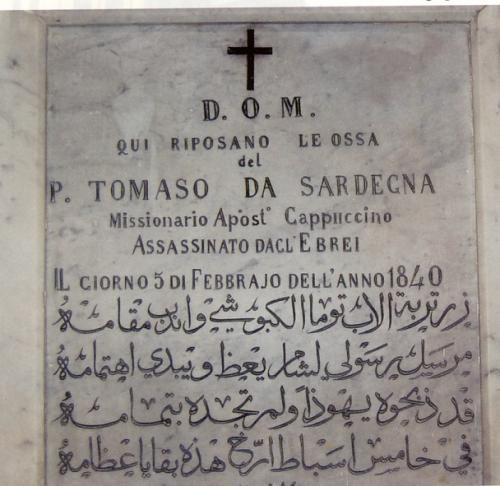 D. O. M.
QUI RIPOSANO LE OSSA
del
P. TOMASO DA SARDEGNA
Missionario Apost° Cappuccino
ASSASSINATO DAGL'EBREI
IL GIORNO 5 DI FEBBRAJO DELL'ANNO 1840
زر تربة الاب توما الكبوشي واندب مقامهُ
مرسل رسولي لشام يعظ ويبدي اهتمامهُ
قد ذبحوه يهوذا ولم تجده بتمامهُ
في خامس اسباط ارّخ هذه بقايا عظامهُ